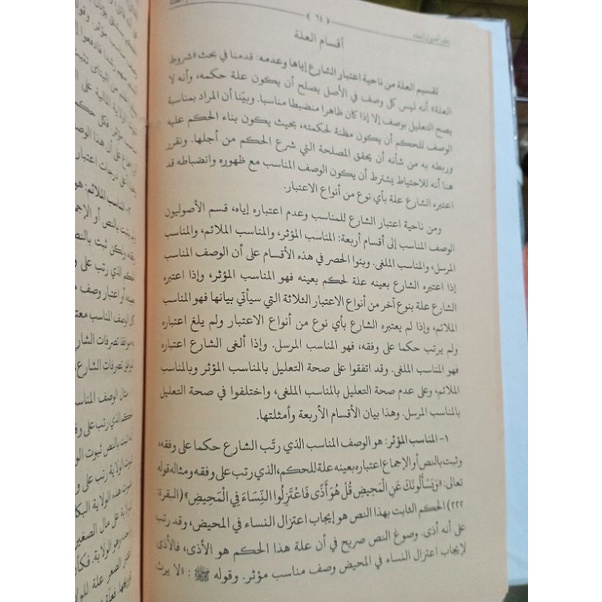 ﴿ ٦٤ ﴾
أقسام العلة
تقسيم العلة من ناحية اعتبار الشارع إياها وعدمه: قدمنا في بحث «شروط
العلة» أنه ليس كل وصف في الأصل يصلح أن يكون علة حكمه، وأنه لا
يصح التعليل بوصف إلا إذا كان ظاهرا منضبطا مناسبا. وبيّنا أن المراد بمناسبة
الوصف للحكم أن يكون مظنة لحكمته، بحيث يكون بناء الحكم عليه
وربطه به من شأنه أن يحقق المصلحة التي شرع الحكم من أجلها. ونقرر
هنا أنه للاحتياط يشترط أن يكون الوصف المناسب مع ظهوره وانضباطه قد
اعتبره الشارع علة بأي نوع من أنواع الاعتبار.
ومن ناحية اعتبار الشارع للمناسب وعدم اعتباره إياه، قسم الأصوليون
الوصف المناسب إلى أقسام أربعة: المناسب المؤثر، والمناسب الملائم، والمناسب
المرسل، والمناسب الملغى. وبنوا الحصر في هذه الأقسام على أن الوصف المناسب
إذا اعتبره الشارع بعينه علة لحكم بعينه فهو المناسب المؤثر، وإذا اعتبره
الشارع علة بنوع آخر من أنواع الاعتبار الثلاثة التي سيأتي بيانها فهو المناسب
الملائم، وإذا لم يعتبره الشارع بأي نوع من أنواع الاعتبار ولم يلغ اعتباره
ولم يرتب حكما على وفقه، فهو المناسب المرسل. وإذا ألغى الشارع اعتباره
فهو المناسب الملغى. وقد اتفقوا على صحة التعليل بالمناسب المؤثر وبالمناسب
الملائم، وعلى عدم صحة التعليل بالمناسب الملغى، واختلفوا في صحة التعليل
بالمناسب المرسل. وهذا بيان الأقسام الأربعة وأمثلتها.
١- المناسب المؤثر: هو الوصف المناسب الذي رتّب الشارع حكما على وفقه،
وثبت بالنص أو الإجماع اعتباره بعينه علة للحكم الذي رتب على وفقه ومثاله قوله
تعالى: ﴿وَيَسْأَلُونَكَ عَنِ الْمَحِيضِ قُلْ هُوَ أَذًى فَاعْتَزِلُوا النِّسَاءَ فِي الْمَحِيضِ﴾ (البقرة
٢٢٢) الحكم الثابت بهذا النص هو إيجاب اعتزال النساء في المحيض، وقد رتب
على أنه أذى. وصوغ النص صريح في أن علة هذا الحكم هو الأذى، فالأذى
لإيجاب اعتزال النساء في المحيض وصف مناسب مؤثر. وقوله ﷺ: «لا يرث